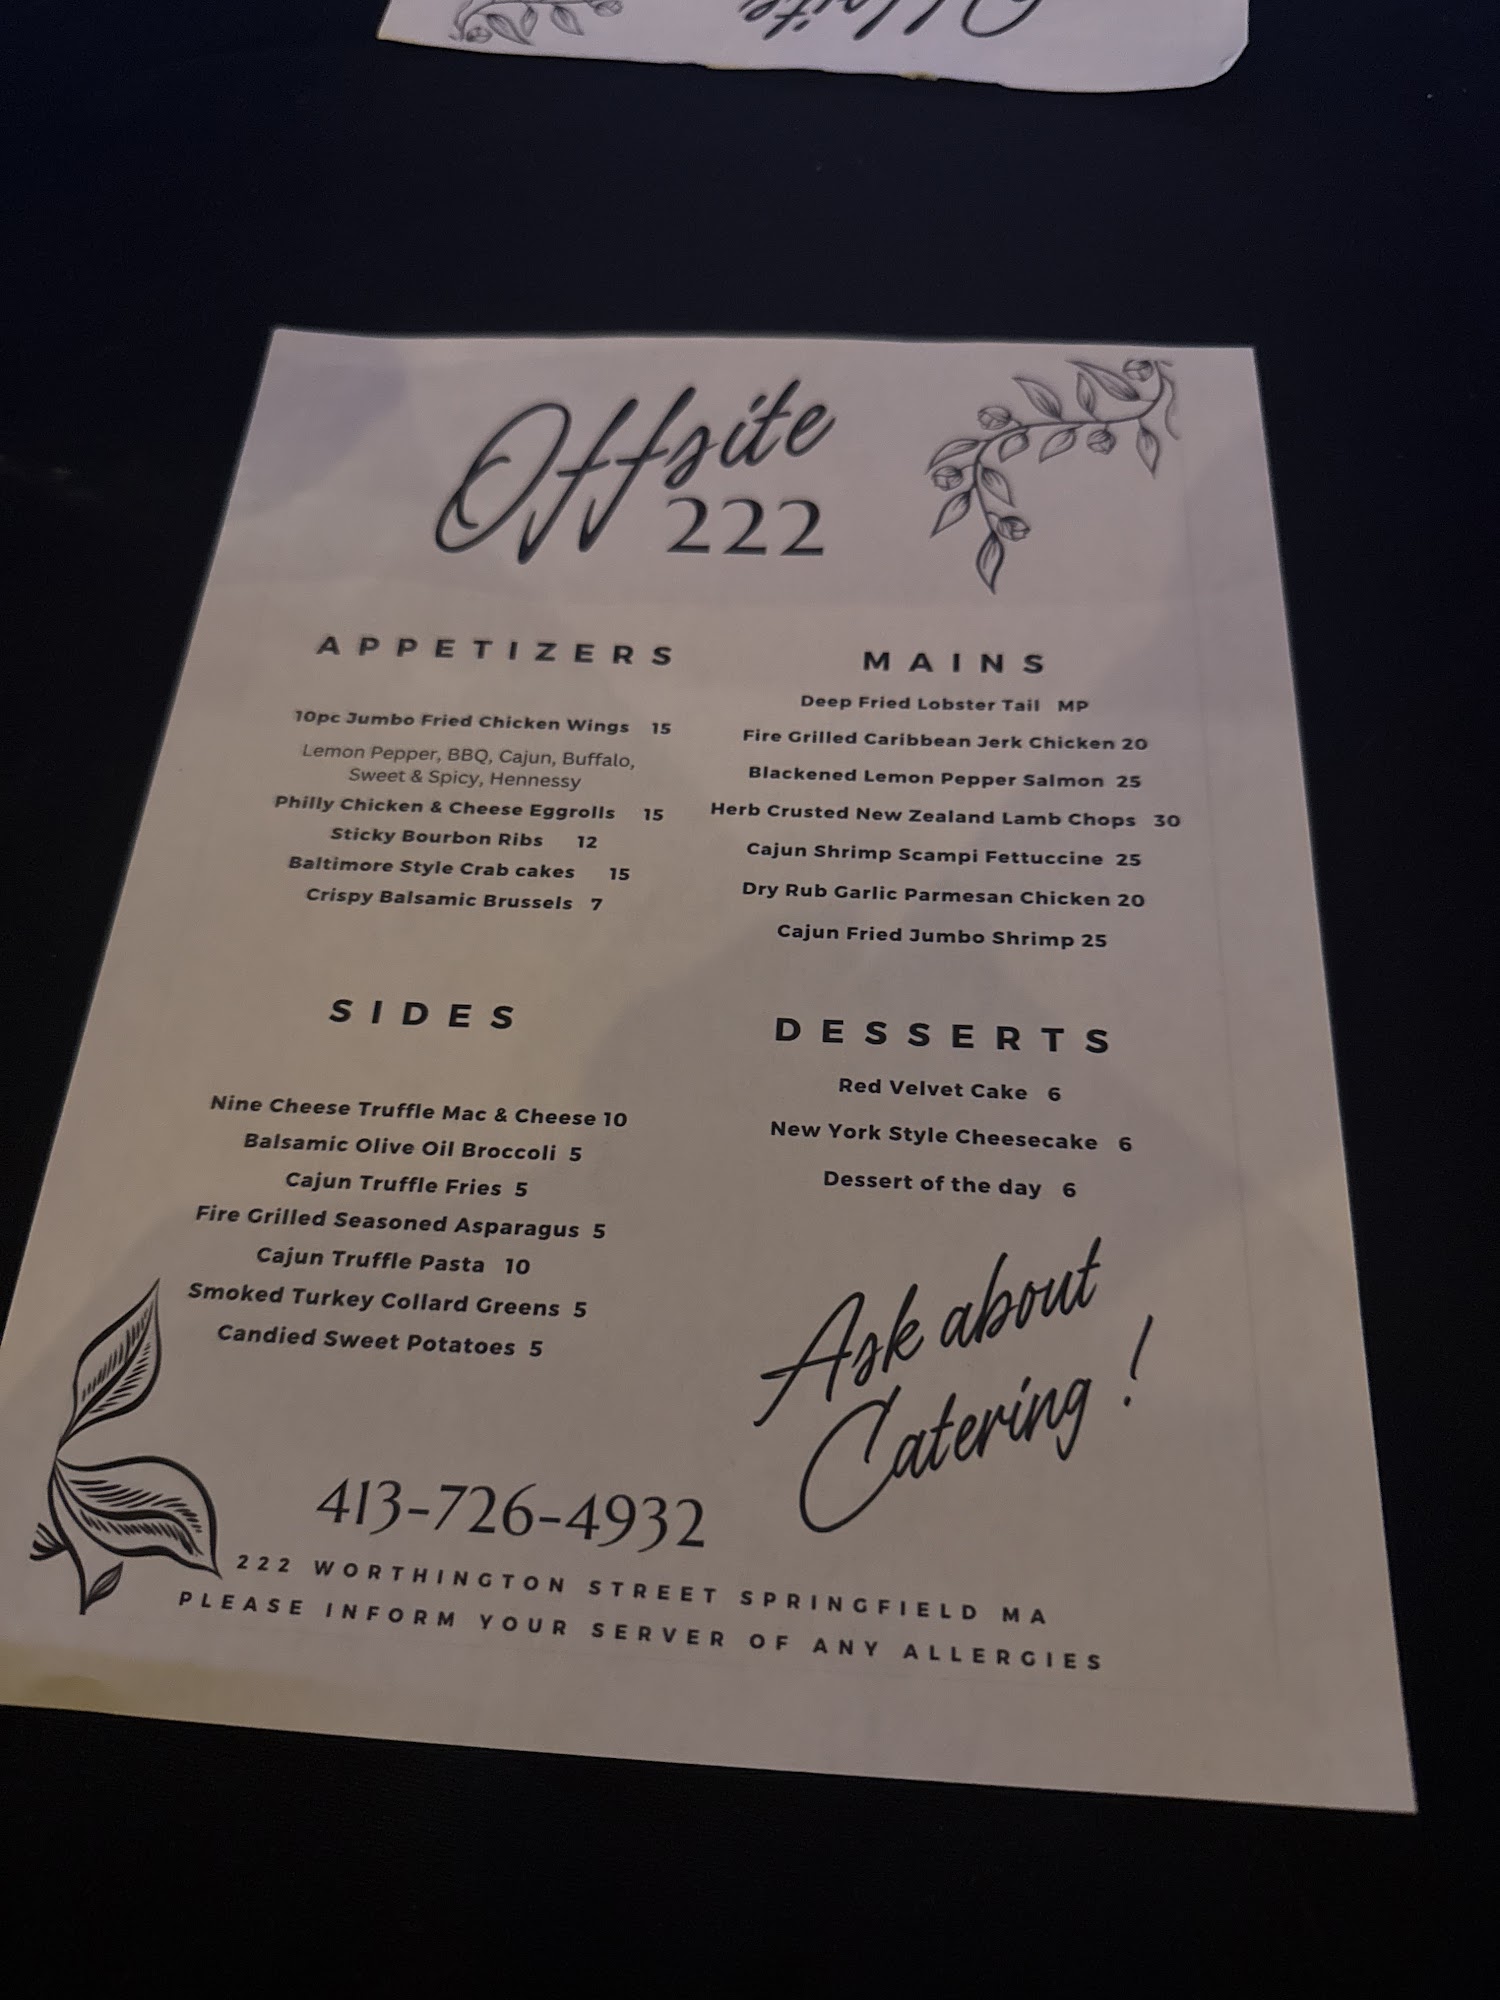 Offsite
222
APPETIZERS
10pc Jumbo Fried Chicken Wings 15
Lemon Pepper, BBQ, Cajun, Buffalo,
Sweet & Spicy, Hennessy
Philly Chicken & Cheese Eggrolls 15
Sticky Bourbon Ribs 12
Baltimore Style Crab cakes 15
Crispy Balsamic Brussels 7
MAINS
Deep Fried Lobster Tail MP
Fire Grilled Caribbean Jerk Chicken 20
Blackened Lemon Pepper Salmon 25
Herb Crusted New Zealand Lamb Chops 30
Cajun Shrimp Scampi Fettuccine 25
Dry Rub Garlic Parmesan Chicken 20
Cajun Fried Jumbo Shrimp 25
SIDES
Nine Cheese Truffle Mac & Cheese 10
Balsamic Olive Oil Broccoli 5
Cajun Truffle Fries 5
Fire Grilled Seasoned Asparagus 5
Cajun Truffle Pasta 10
Smoked Turkey Collard Greens 5
Candied Sweet Potatoes 5
DESSERTS
Red Velvet Cake 6
New York Style Cheesecake 6
Dessert of the day 6
Ask about
Catering !
413-726-4932
222 WORTHINGTON STREET SPRINGFIELD MA
PLEASE INFORM YOUR SERVER OF ANY ALLERGIES